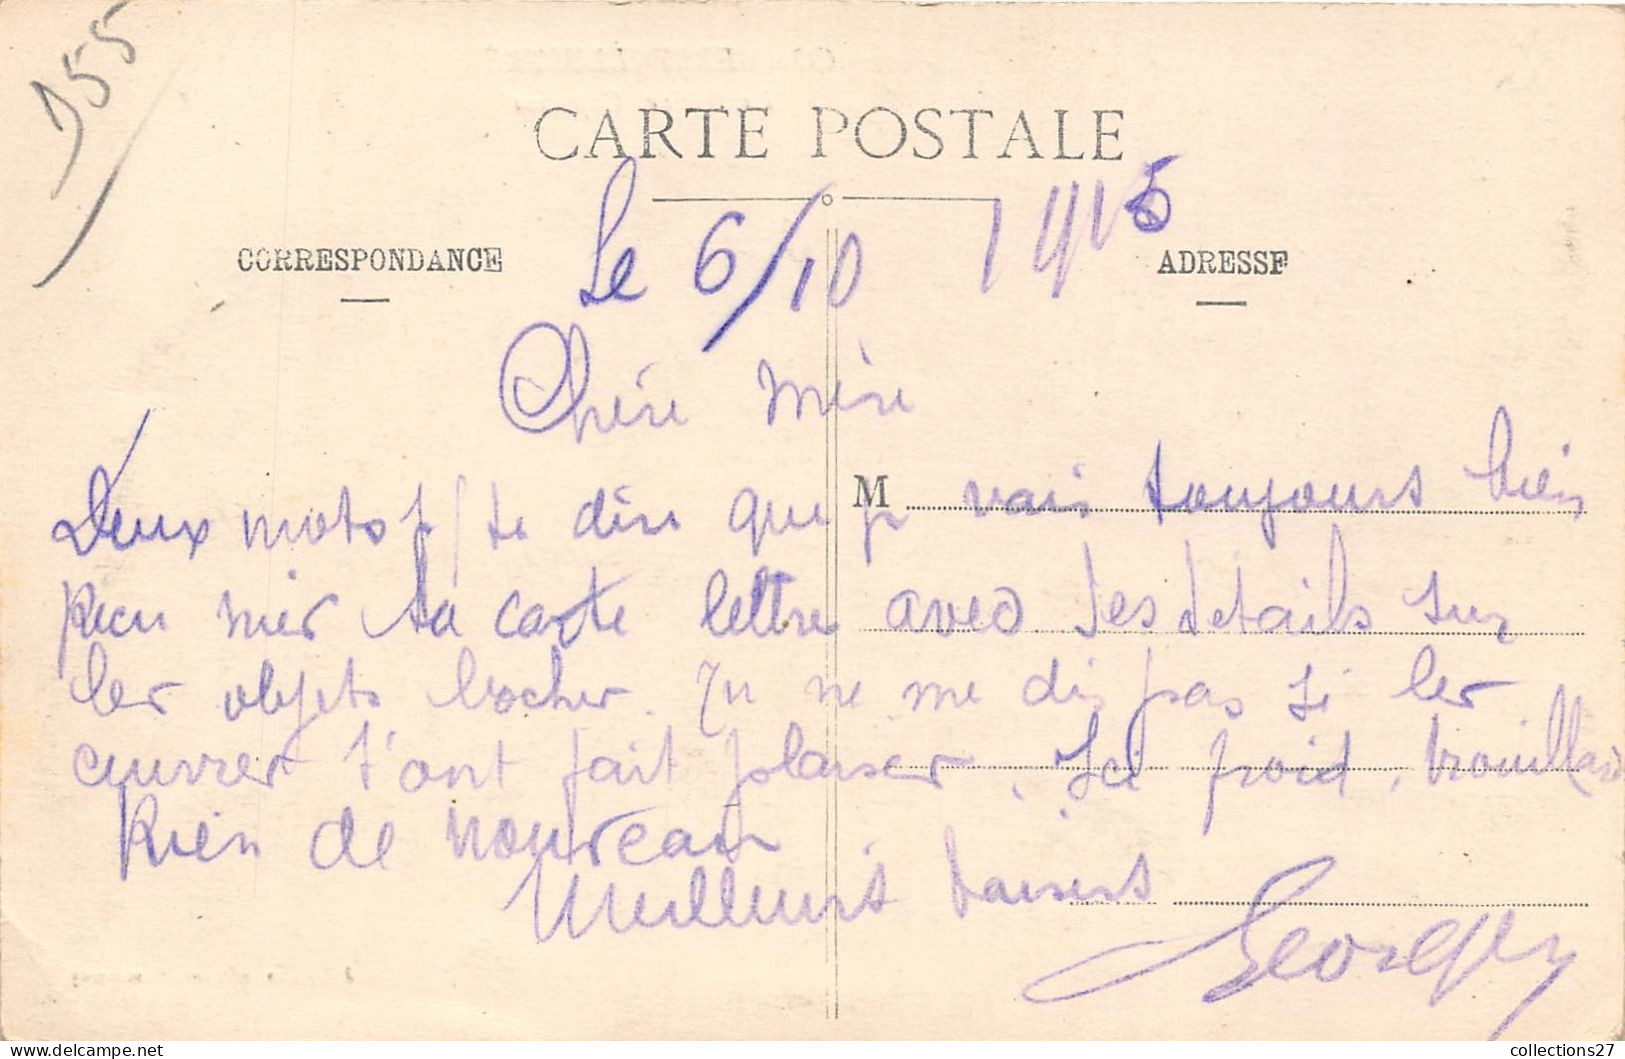 155
CARTE POSTALE
CORRESPONDANCE
ADRESSE
Le 6/10 1915
Chère Mère
Deux mots p/ te dire que je vais toujours bien
M
Recu hier ta carte lettre avec des détails sur
les objets bocher. Tu ne me dis pas si les
t'ont fait plaiser. Ici froid, brouillard
Rien de nouveau
Meilleurs baisers
Georges
collections27